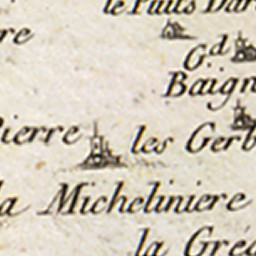 le Puits Dar
re
G.d
Baign
Pierre les Gerb
la Micheliniere
la Gré